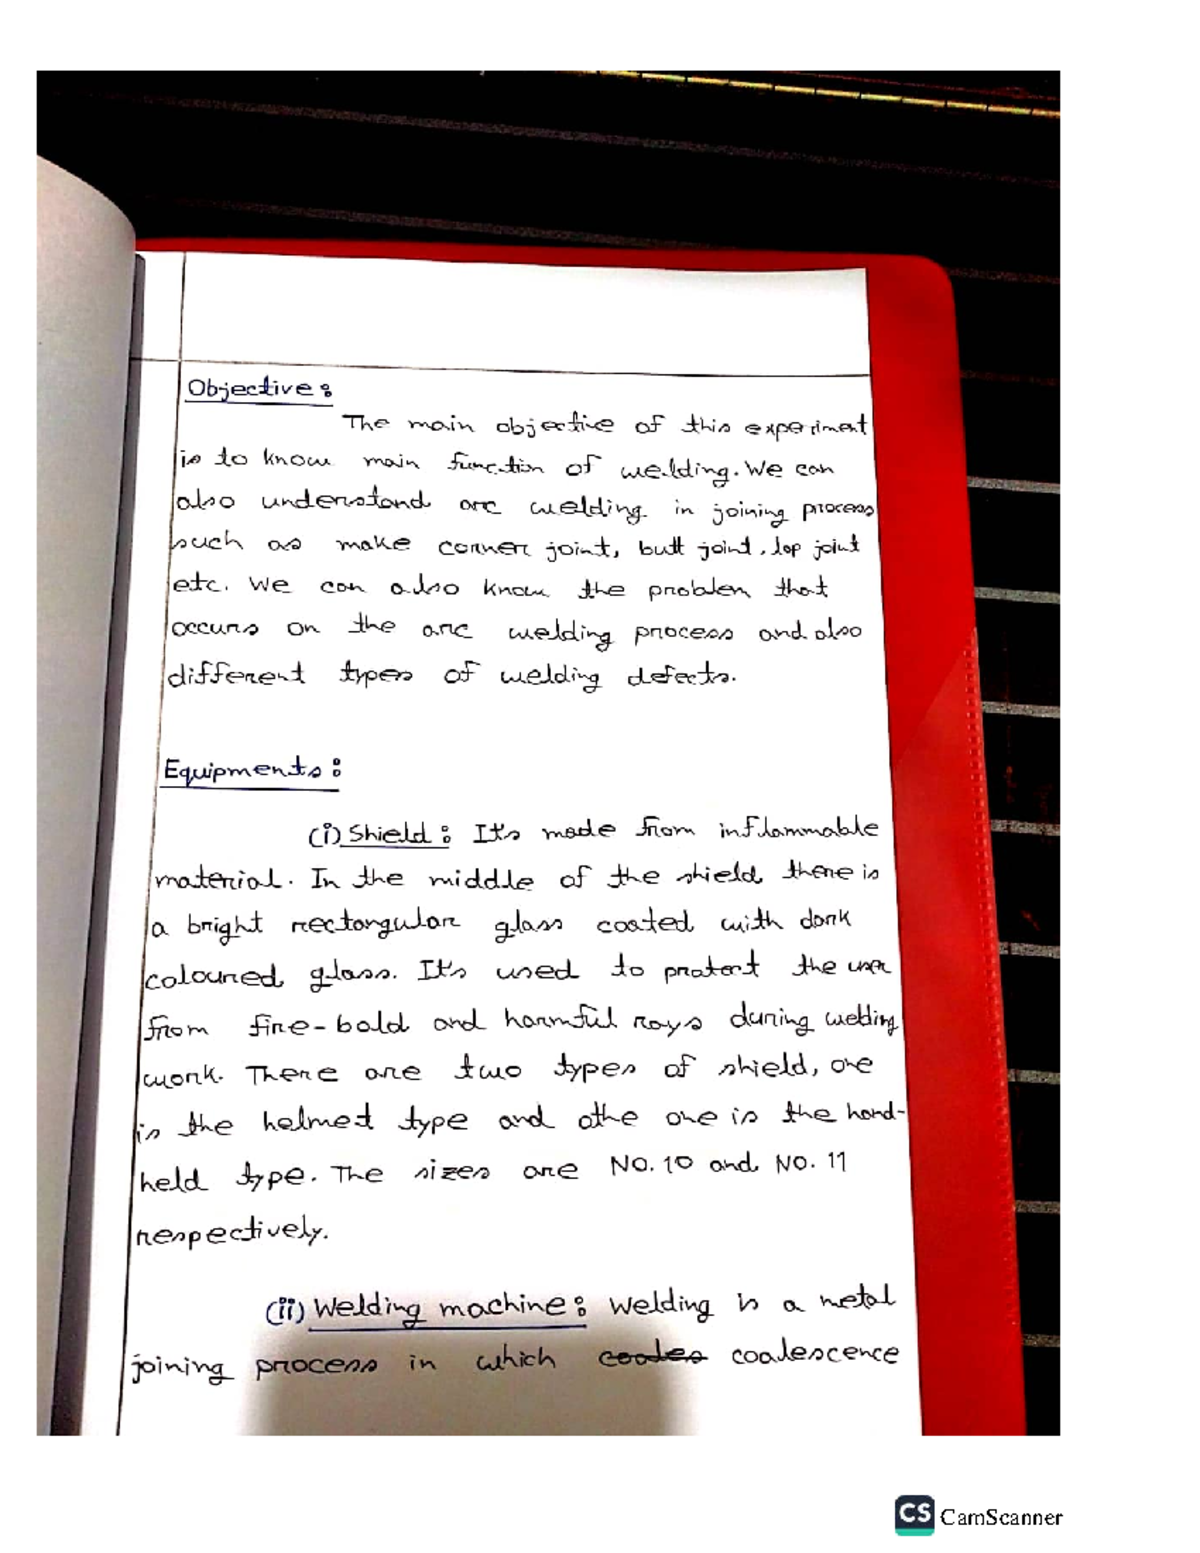 Objective:
The main objective of this experiment
is to know main function of welding. We can
also understand arc welding in joining process
such as make corner joint, butt joint, lap joint
etc. We can also know the problem that
occurs on the arc welding process and also
different types of welding defects.
Equipments:
(i) Shield: It's made from inflammable
material. In the middle of the shield there is
a bright rectangular glass coated with dark
coloured glass. It's used to protect the user
from fire-bold and harmful rays during welding
work. There are two types of shield, one
is the helmet type and othe one is the hand-
held type. The sizes are No. 10 and No. 11
respectively.
(ii) Welding machine: Welding is a metal
joining process in which coales coalescence
CS CamScanner